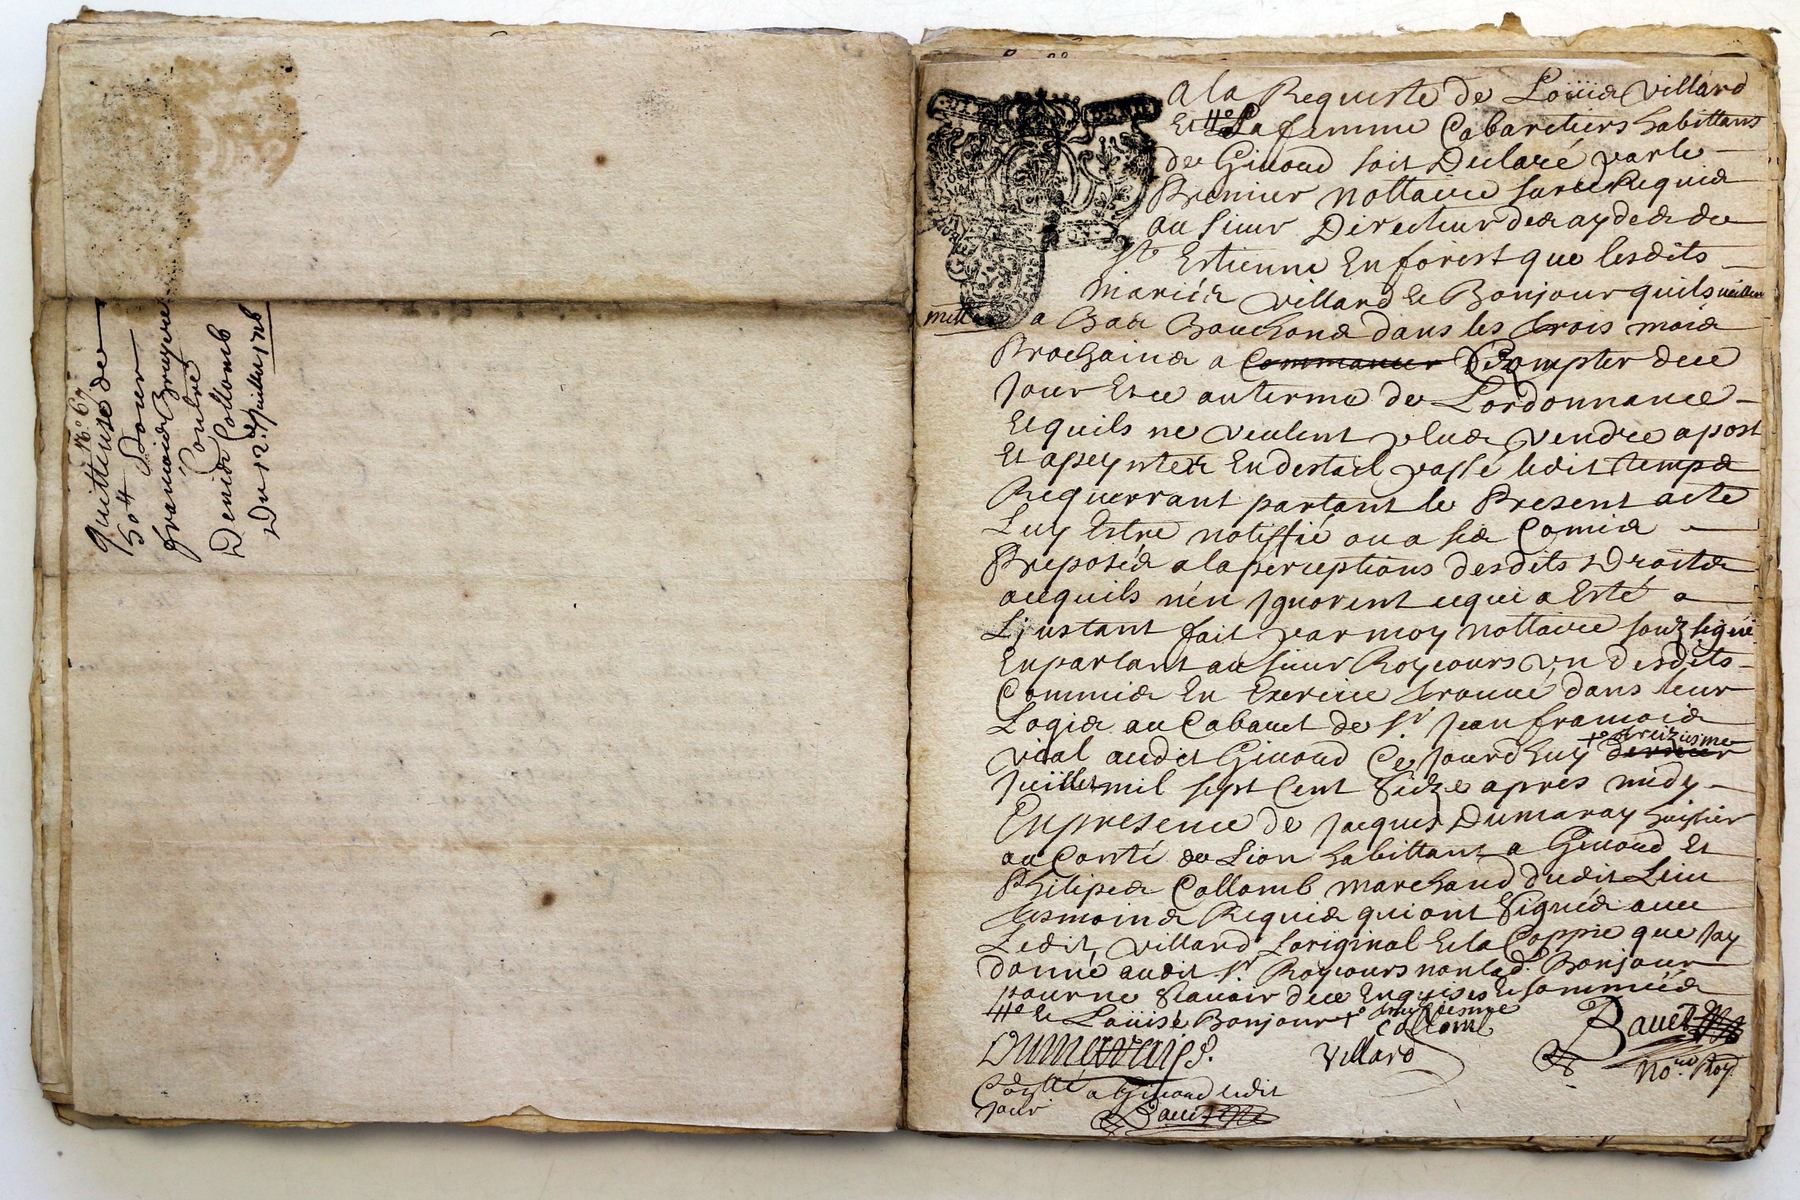 N.° 67
quittense de
50 # Pour
francois Bruyere
Contre
Denis Collomb
Du 12.e Juillet 1716
A la Requeste de Loüis Villard
Et # La femme Cabaretiers habittans
de Givord soit Declaré par le
Premier nottaire sur ce Requis
au sieur Directeur des aydes de
st Estienne En forest que lesdits
mariés Villard & Bonjour quils veullent
mettre a Bas Bouchons dans les trois mois
Prochains a Commancer Compter de ce
Jour Et ce au terme de Lordonnance
Et quils ne veulent plus vendre a post
Et a peyntes En destail passé ledit temps
Requerrant partant le Present acte
Luy Estre nottiffié ou a ses Comis
Preposés a la perceptions desdits Droits
ace quils n'en Ignorent ce qui a Esté a
L'instant fait par moy nottaire souzsigné
En parlant au sieur Roycours un desdits
Commis En Exercice trouvé dans leur
Logis au Cabaret de sr Jean francois
Vial audit Givord Ce Jourdhuy dernier +° treiziesme
Juillet mil sept Cent Seize apres midy
En presence de Jacques Dumaray huissier
au Conté de Lion habittant a Givord Et
Philipes Collomb marchand dudit Lieu
tesmoins Requis qui ont Signés avec
Ledit Villard Loriginal & la Coppie que Jay
donné audit sr Roycours non lad. Bonjour
pour ne Scavoir de ce Enquises & sommées
# & Loüise Bonjour +° treiziesme
Collomb
Dumaray
Villard
Not.re Roy.
a Givord ledit
Jour